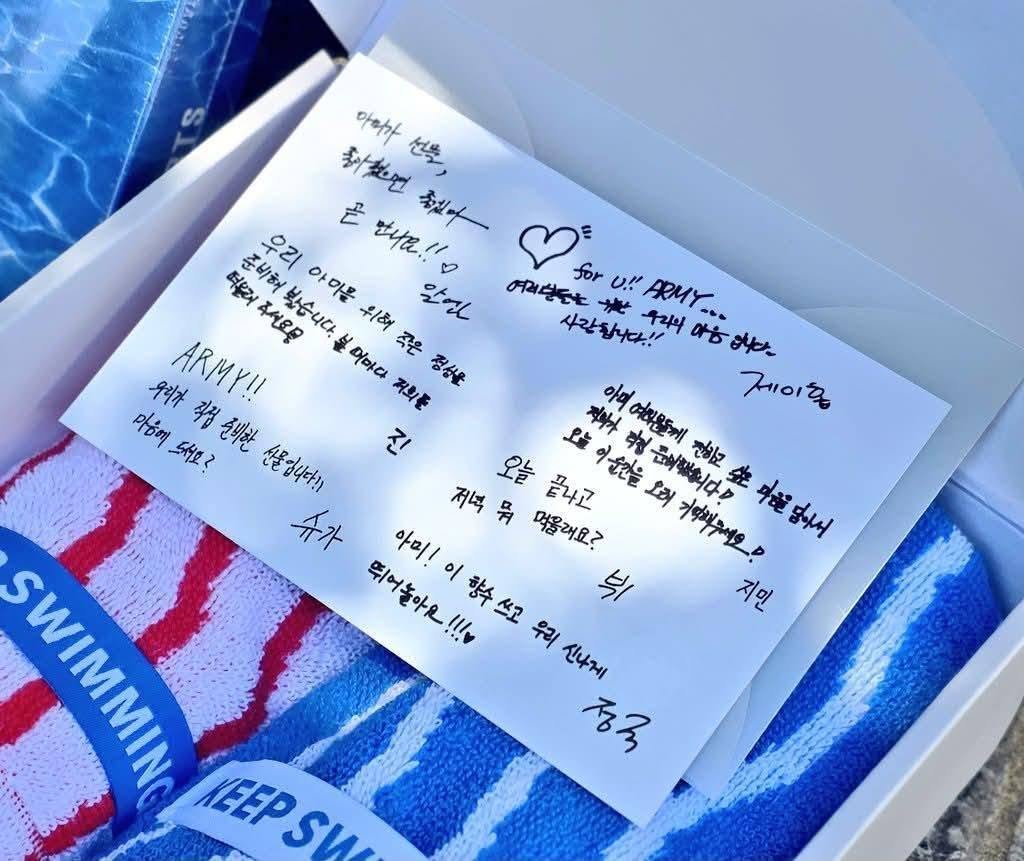 아미가 선물,
좋아했으면 좋겠다
곧 만나요!! ♡
알엠
for U!! ARMY...
우리의 마음입니다~
사랑합니다!!
제이홉
우리 아미를 위해 작은 정성을
준비해 봤습니다. 볼 때마다 저희를
떠올려 주시길
진
ARMY!!
우리가 직접 준비한 선물입니다!!
마음에 드세요?
슈가
아미 여러분들께 전하고 싶은 마음을 담아서
직접 준비했습니다!
오늘 이 순간을 오래 기억해주세요!
지민
오늘 끝나고
저녁 뭐 먹을래요?
뷔
아미! 이 향수 쓰고 우리 신나게
뛰어놀아요!!!♥
정국
SWIMMING
KEEP SWIM